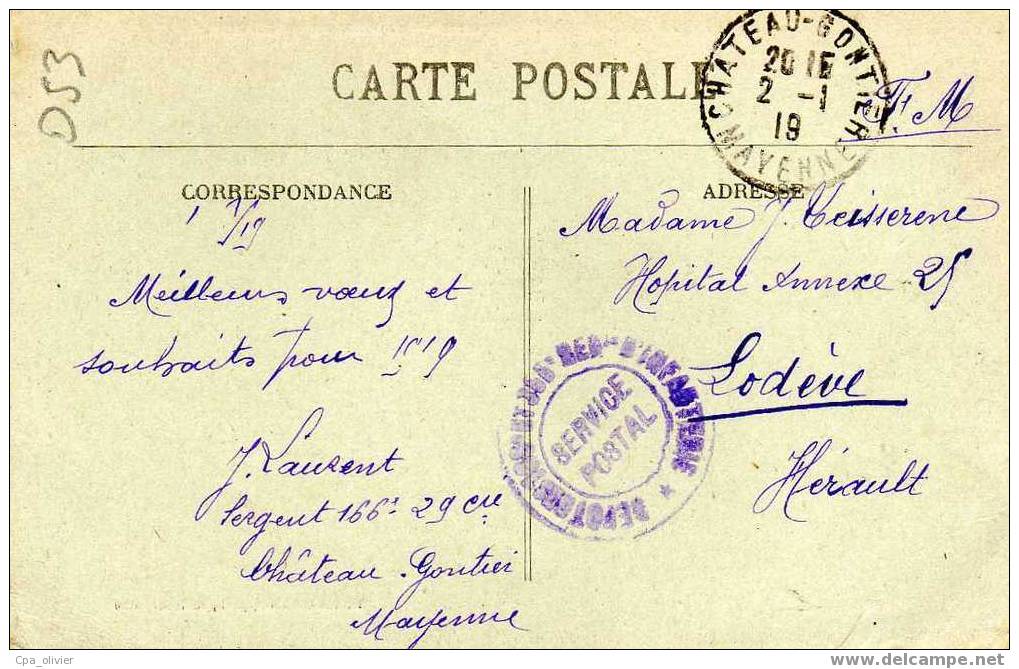 D53
CARTE POSTALE
CHATEAU-GONTIER
2-1
19
MAYENNE
F. M
CORRESPONDANCE
ADRESSE
1/19
Meilleurs vœux et
souhaits pour 1919
J. Laurent
Sergent 166e 29 cie
Château-Gontier
Mayenne
Madame J. Teisserenc
Hopital Annexe 25
Lodève
Hérault
D'INFANTERIE
SERVICE
POSTAL
Cpa_olivier
www.delcampe.net